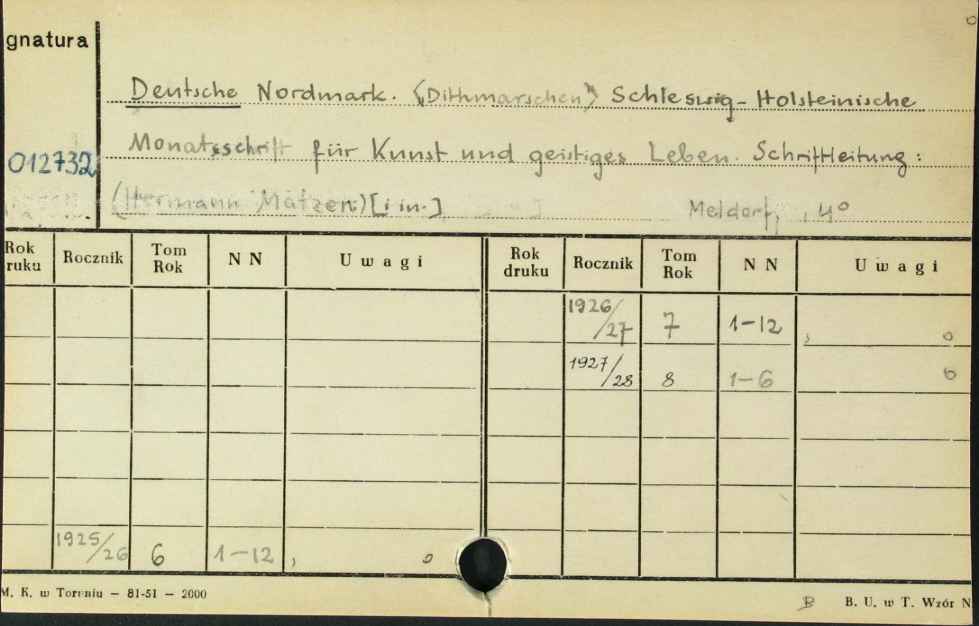 gnatura
Deutsche Nordmark. (Dithmarschen) Schleswig-Holsteinische
Monatsschrift für Kunst und geistiges Leben. Schriftleitung:
012732
(Hermann Matzen) [i in.] Meldorf, , 4°
Rok ruku Rocznik Tom Rok N N Uwagi Rok druku Rocznik Tom Rok N N Uwagi
1926/27 7 1-12 , o
1927/28 8 1-6 o
1925/26 6 1-12 , o
M. K. w Toruniu — 81-51 — 2000 B B. U. w T. Wzór N